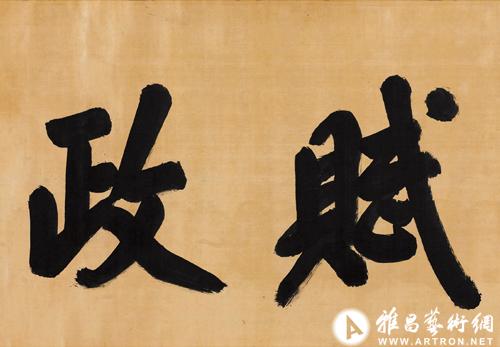 賦政
雅昌藝術網
WWW.ARTRON.NET